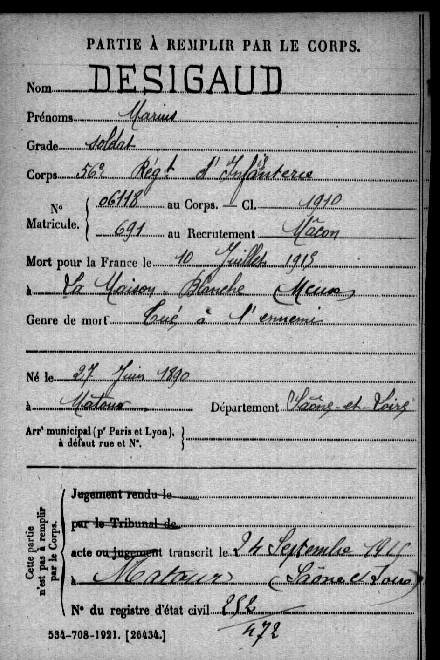 PARTIE À REMPLIR PAR LE CORPS.
Nom DESIGAUD
Prénoms Marius
Grade soldat
Corps 56e Régt d'Infanterie
No Matricule. { 06118 au Corps. — Cl. 1910
691 au Recrutement Mâcon
Mort pour la France le 10 Juillet 1915
à La Maison Blanche (Meuse)
Genre de mort Tué à l'ennemi
Né le 27 Juin 1890
à Matour Département Saône-et-Loire
Arrt municipal (pr Paris et Lyon), à défaut rue et No. }
Cette partie n'est pas à remplir par le Corps. {
Jugement rendu le
par le Tribunal de
acte ou jugement transcrit le 24 Septembre 1915
à Matour (Saône et Loire)
No du registre d'état civil 252
472
534-708-1921. [26434.]